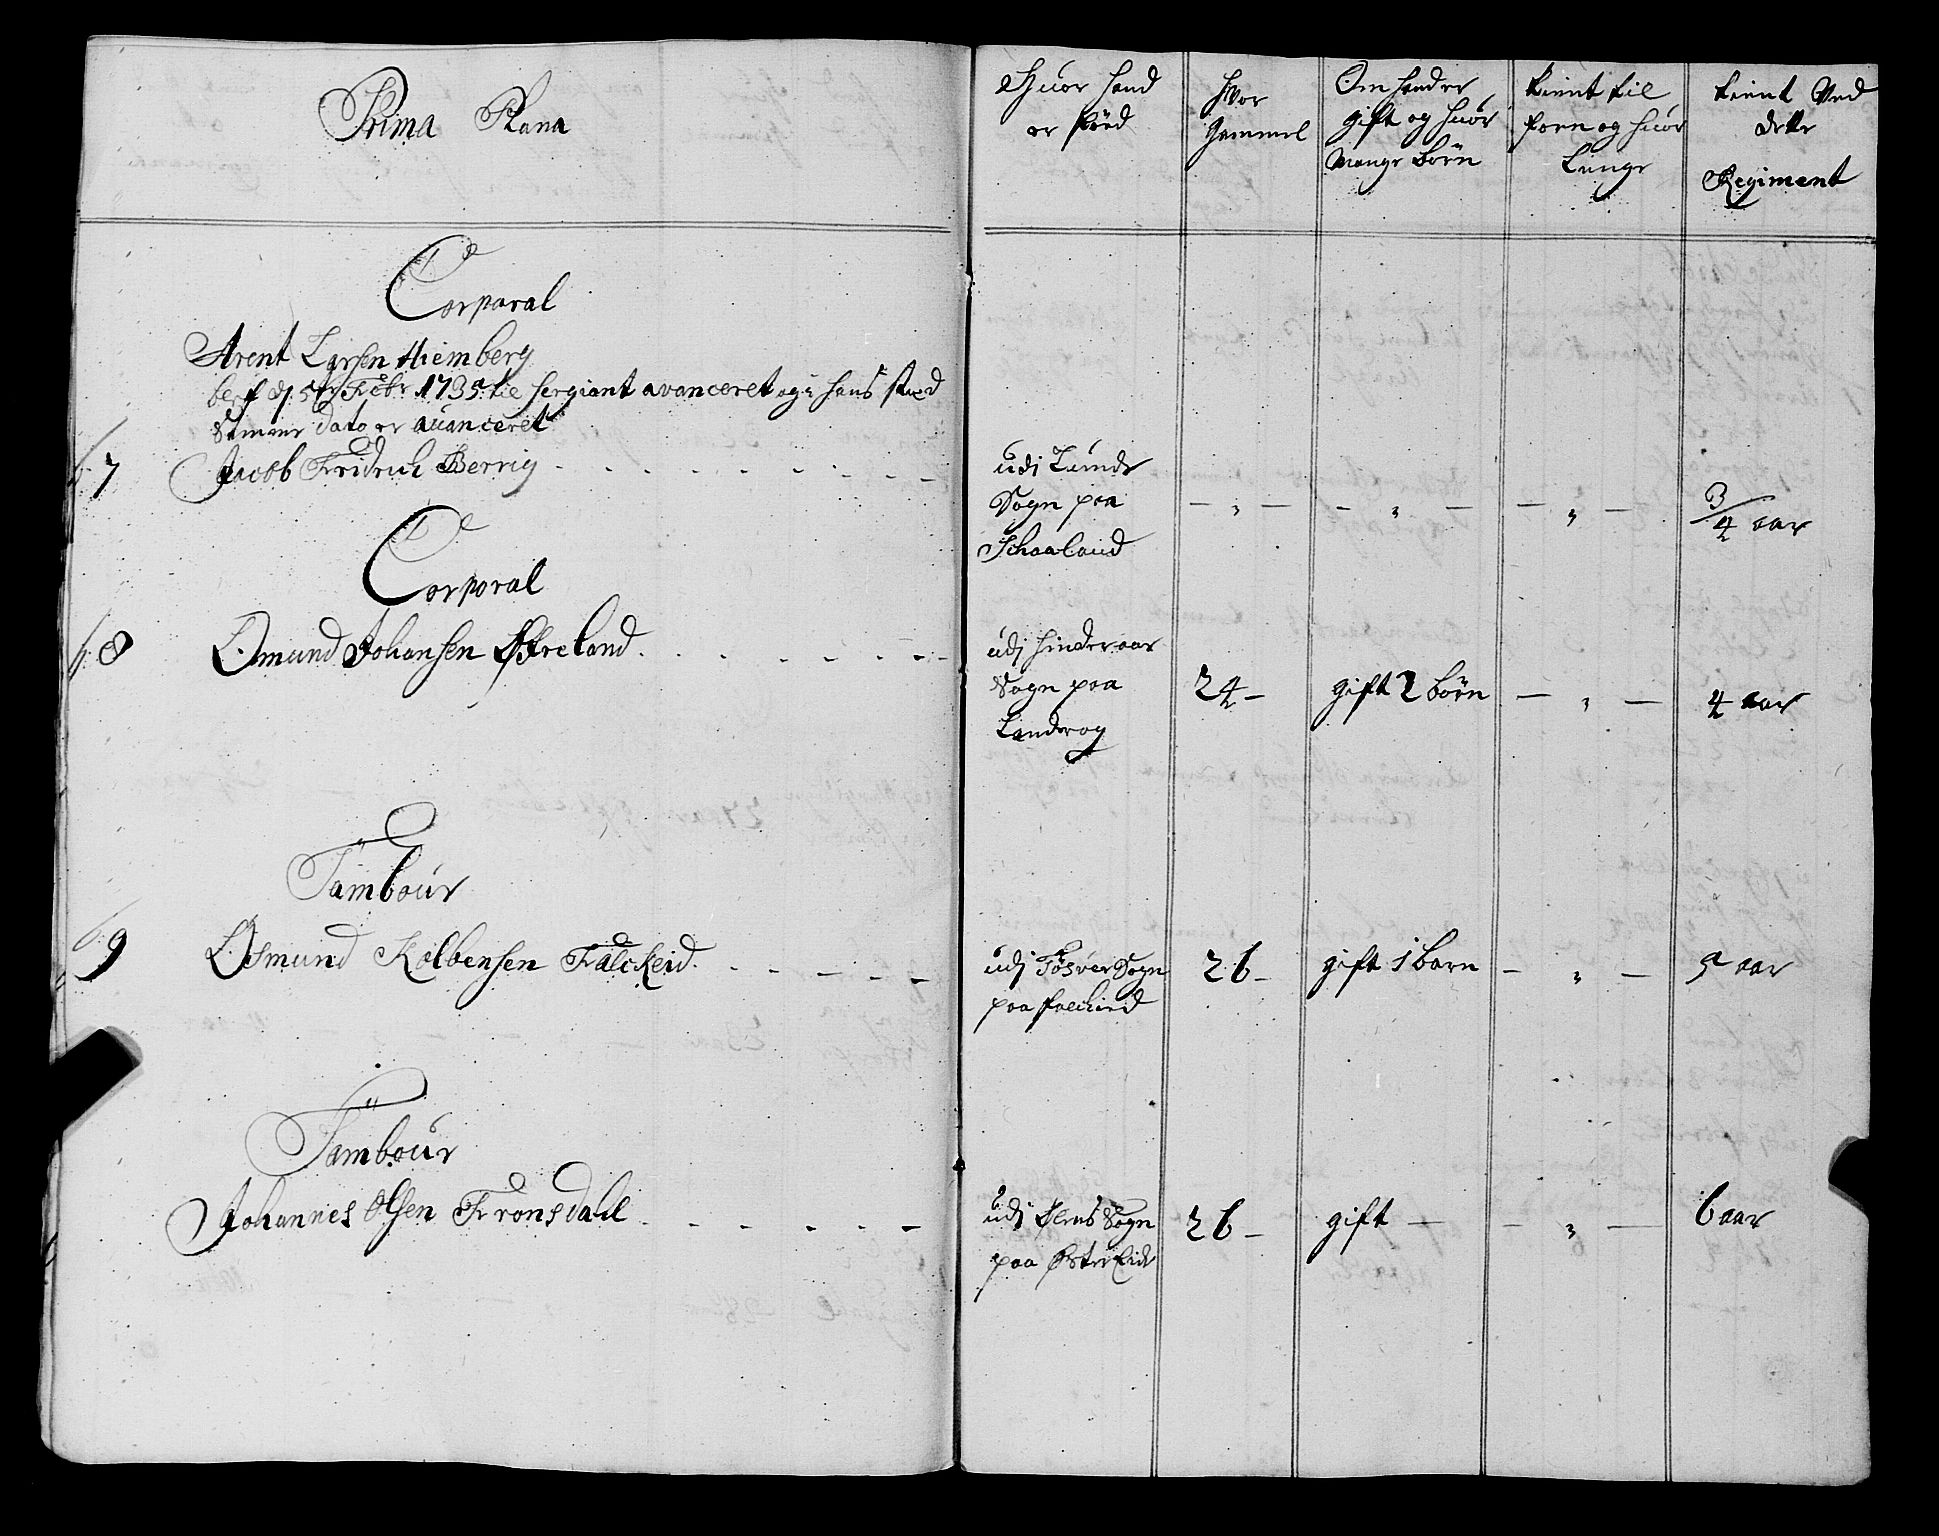 Prima Plana
Huor hand
er fød
Hvor
Gammel
Om hand er
gift og huor
mange børn
tient til
forn og huor
Lenge
tient Ved
dette
Regiment
Corporal
Arent Larsen Hiemberg
Febr 1735 til Sergiant avanceret og i hans sted
Samme Dato er avanceret
7 Jacob Fridrich Berrig
udi Lunde
Sogn paa
Schaaland
3/4 aar
Corporal
8 Osmund Johansen Østreland
udj Hinderaar
Sogn paa
Landrog
24 gift 2 børn 4 aar
Tambour
9 Osmund Kolbensen Falckeid
udj Fosver Sogn
paa Falcheid
26 gift 1 barn 5 aar
Tambour
Johannes Olsen Fronsdahl
udj Sogn
paa Øster Eide
26 gift 6 aar